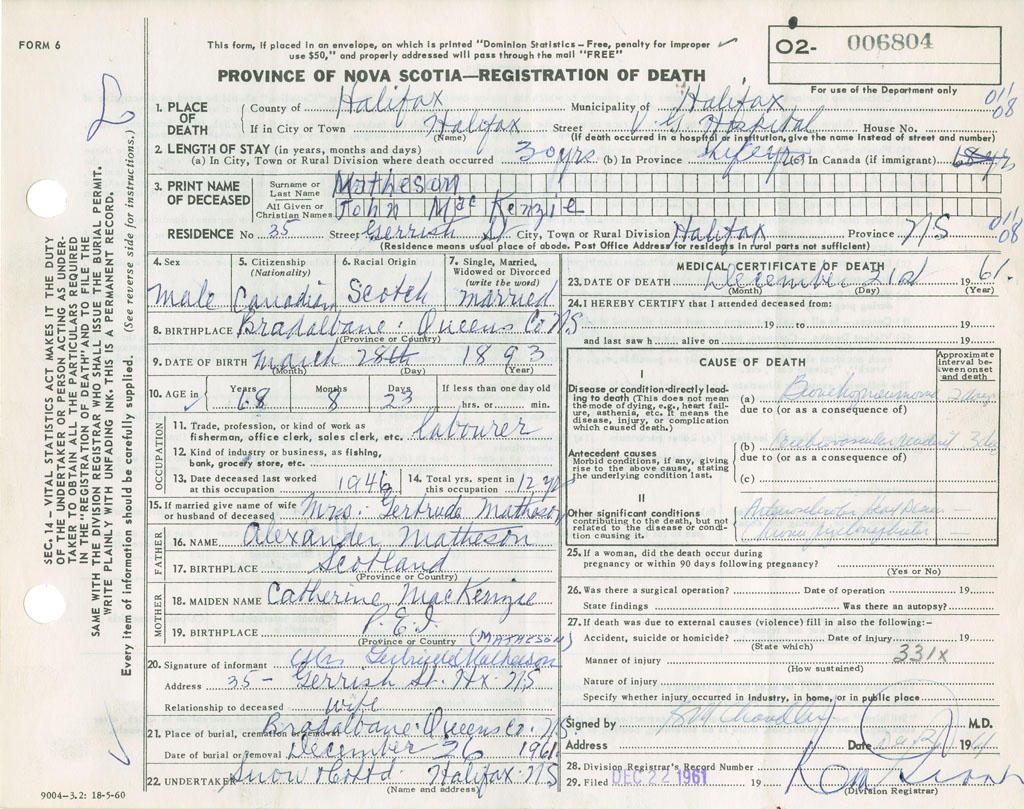 FORM 6
This form, if placed in an envelope, on which is printed "Dominion Statistics—Free, penalty for improper
use $50," and properly addressed will pass through the mail "FREE"
O2- 006804
For use of the Department only
PROVINCE OF NOVA SCOTIA—REGISTRATION OF DEATH
SEC. 14 – VITAL STATISTICS ACT MAKES IT THE DUTY
OF THE UNDERTAKER OR PERSON ACTING AS UNDER-
TAKER TO OBTAIN ALL THE PARTICULARS REQUIRED
IN THE "REGISTRATION OF DEATH" AND TO FILE THE
SAME WITH THE DIVISION REGISTRAR WHO SHALL ISSUE THE BURIAL PERMIT.
WRITE PLAINLY WITH UNFADING INK • THIS IS A PERMANENT RECORD.
Every item of information should be carefully supplied. (See reverse side for instructions.)
1. PLACE OF DEATH
County of Halifax Municipality of Halifax 011 08
If in City or Town Halifax Street V. G. Hospital House No.
(Name) (If death occurred in a hospital or institution, give the name instead of street and number)
2. LENGTH OF STAY (in years, months and days)
(a) In City, Town or Rural Division where death occurred 30 yrs (b) In Province Life (c) In Canada (if immigrant)
3. PRINT NAME OF DECEASED
Surname or Last Name Matheson
All Given or Christian Names John MacKenzie
RESIDENCE No 35 Street Gerrish St City, Town or Rural Division Halifax Province NS 011 08
(Residence means usual place of abode. Post Office Address for residents in rural parts not sufficient)
4. Sex Male
5. Citizenship (Nationality) Canadian
6. Racial Origin Scotch
7. Single, Married, Widowed or Divorced (write the word) Married
8. BIRTHPLACE Bradalbane: Queens Co NS
(Province or Country)
9. DATE OF BIRTH March 28th 1893
(Month) (Day) (Year)
10. AGE in Years 68 Months 8 Days 23 If less than one day old
hrs. or min.
OCCUPATION
11. Trade, profession, or kind of work as
fisherman, office clerk, sales clerk, etc. labourer
12. Kind of industry or business, as fishing,
bank, grocery store, etc.
13. Date deceased last worked at this occupation 1946
14. Total yrs. spent in this occupation 12 yrs
15. If married give name of wife or husband of deceased Mrs: Gertrude Matheson
FATHER
16. NAME Alexander Matheson
17. BIRTHPLACE Scotland
(Province or Country)
MOTHER
18. MAIDEN NAME Catherine MacKenzie
19. BIRTHPLACE P.E.I.
(Province or Country) (MATHESON)
20. Signature of informant Mrs Gertrude Matheson
Address 35 - Gerrish St. Hx. NS
Relationship to deceased Wife
21. Place of burial, cremation or removal Bradalbane: Queens Co: NS
Date of burial or removal December 26 1961
22. UNDERTAKER Snow & Co Ltd. Halifax: NS
(Name and address)
9004–3.2: 18-5-60
MEDICAL CERTIFICATE OF DEATH
23. DATE OF DEATH December 21st 1961.
(Month) (Day) (Year)
24. I HEREBY CERTIFY that I attended deceased from:
19 to 19
and last saw h alive on 19
CAUSE OF DEATH
Approximate interval between onset and death
I
Disease or condition directly lead-
ing to death (This does not mean
the mode of dying, e.g., heart fail-
ure, asthenia, etc. It means the
disease, injury, or complication
which caused death.)
(a) Bronchopneumonia 2 days
due to (or as a consequence of)
Antecedent causes
Morbid conditions, if any, giving
rise to the above cause, stating
the underlying condition last.
(b) Cerebrovascular accident 3 d
due to (or as a consequence of)
(c)
II
Other significant conditions
contributing to the death, but not
related to the disease or con-
dition causing it.
Arteriosclerotic Heart Disease
Chronic pyelonephritis
25. If a woman, did the death occur during
pregnancy or within 90 days following pregnancy?
(Yes or No)
26. Was there a surgical operation? Date of operation 19
State findings Was there an autopsy?
27. If death was due to external causes (violence) fill in also the following:–
Accident, suicide or homicide? Date of injury 19
(State which)
Manner of injury 331X
(How sustained)
Nature of injury
Specify whether injury occurred in industry, in home, or in public place
Signed by Chandler M.D.
Address Date 19 61
28. Division Registrar's Record Number
29. Filed DEC 22 1961 19
(Division Registrar)